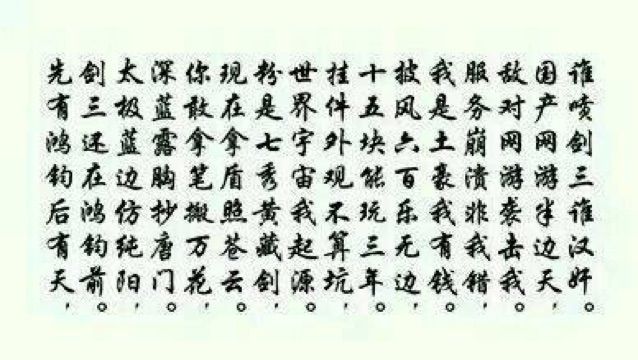 先有鸿钧后有天，
剑三还在鸿钧前。
太极蓝边仿纯阳，
深蓝露胸抄唐门。
你敢拿笔搬万花，
现在拿盾照苍云。
粉是七秀黄藏剑，
世界宇宙我起源。
挂件外观不算坑，
十五块能玩三年。
披风六百乐无边，
我是土豪我有钱。
服务崩溃非我错，
敌对网游袭击我。
国产网游半边天，
谁喷剑三谁汉奸。